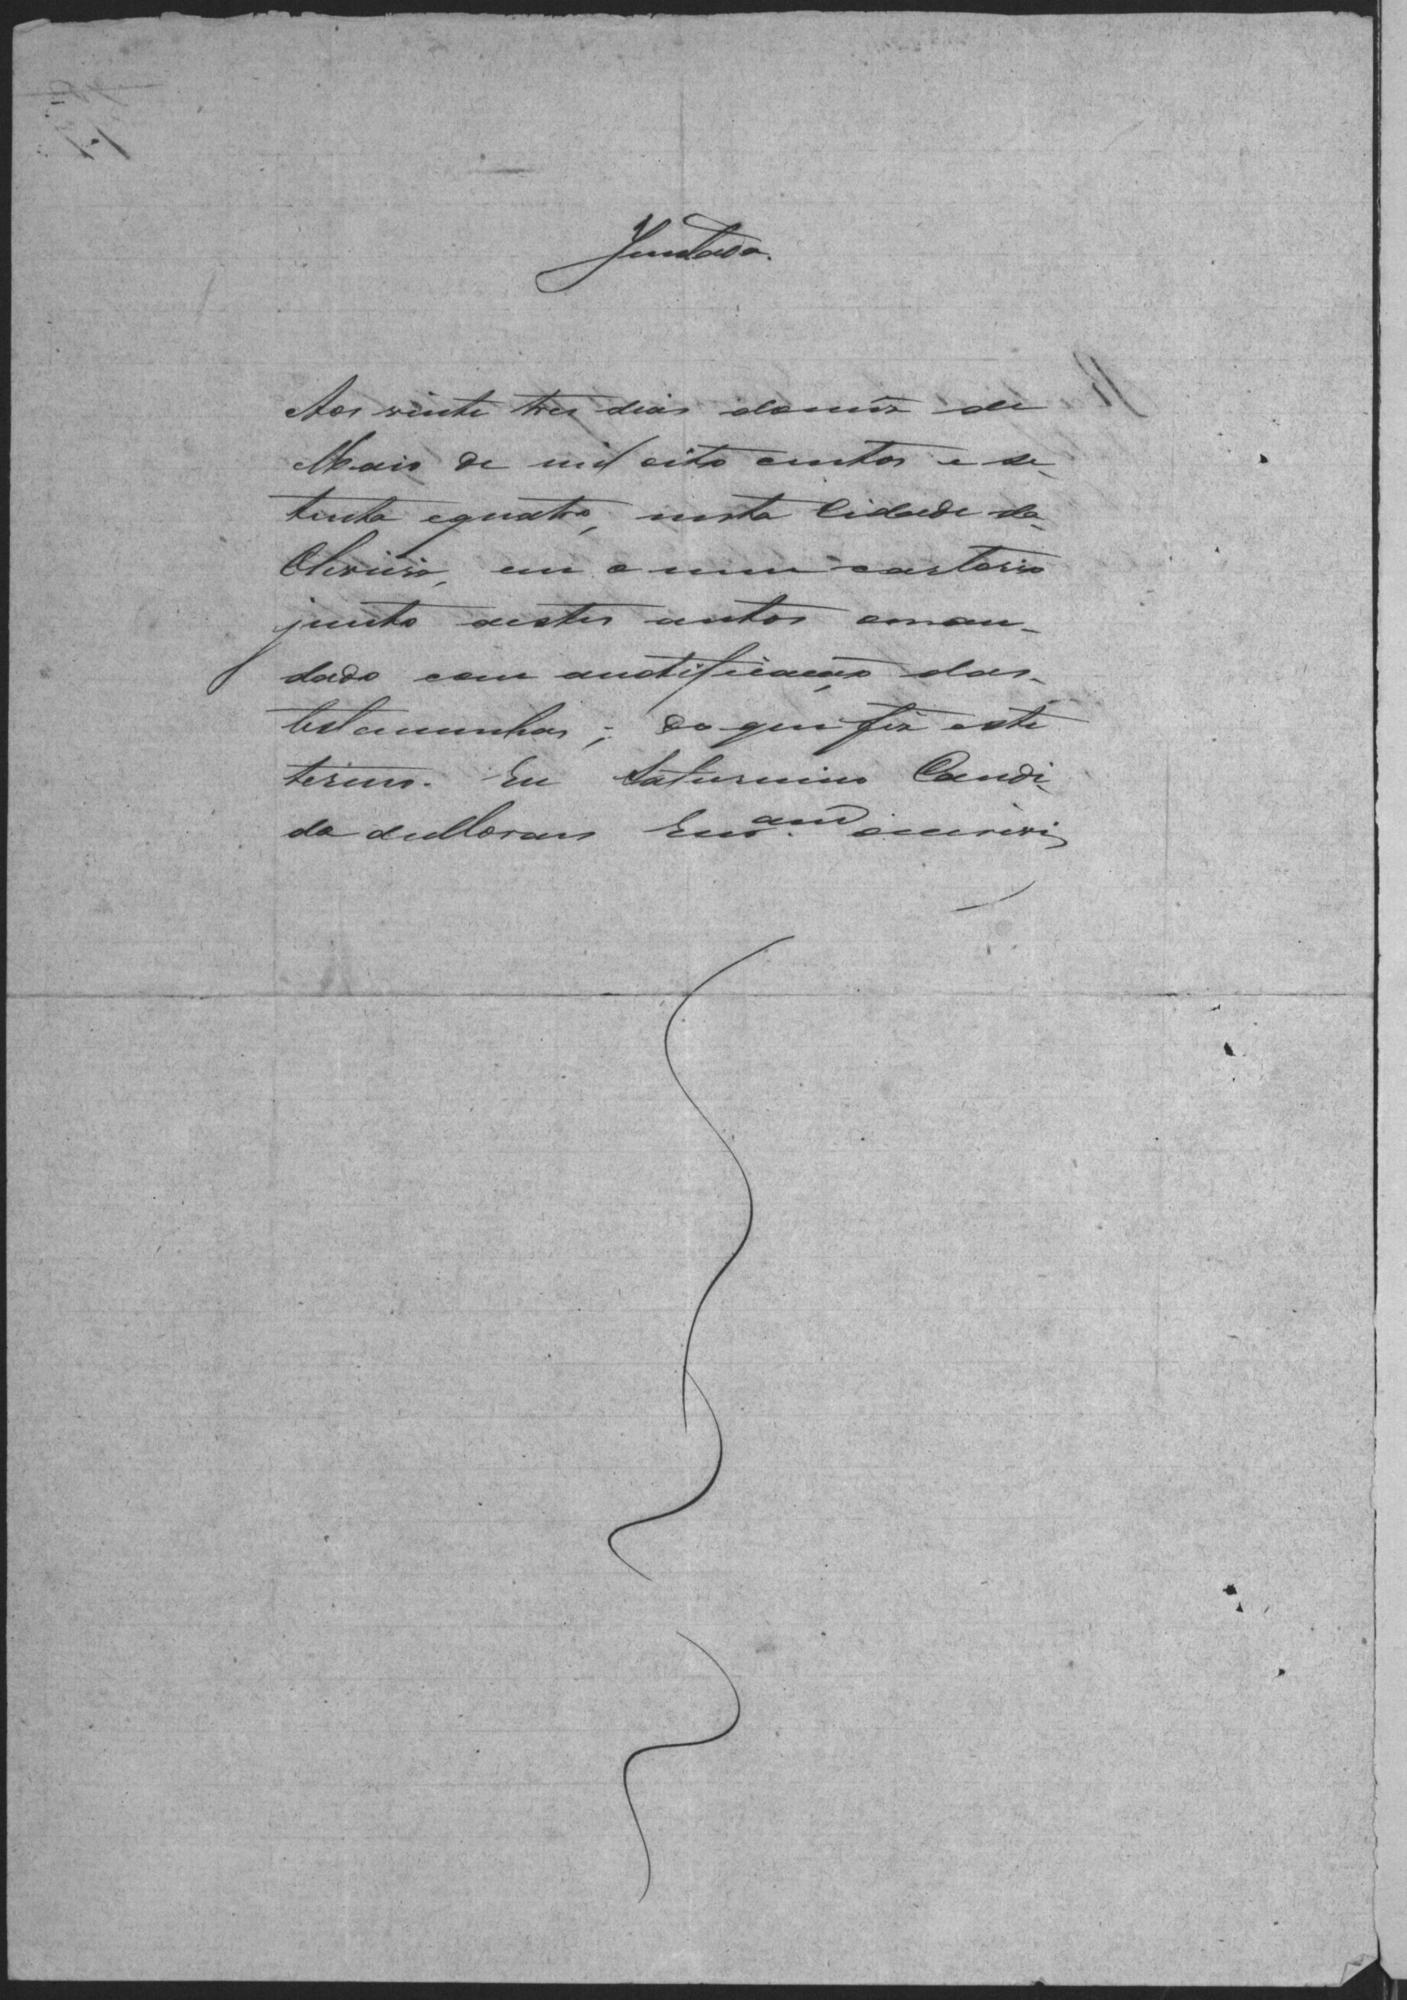 Juntada.
Aos vinte tres dias domez de
Maio de mil oito centos e se-
tenta equatro, nesta Cidade da
Oliveira, em o meu cartorio
junto aestes autos oman-
dado com anotificação das-
testemunhas; do que fiz este
termo. Eu Saturnino Candi-
do deMoraes Escr.am oescrevi